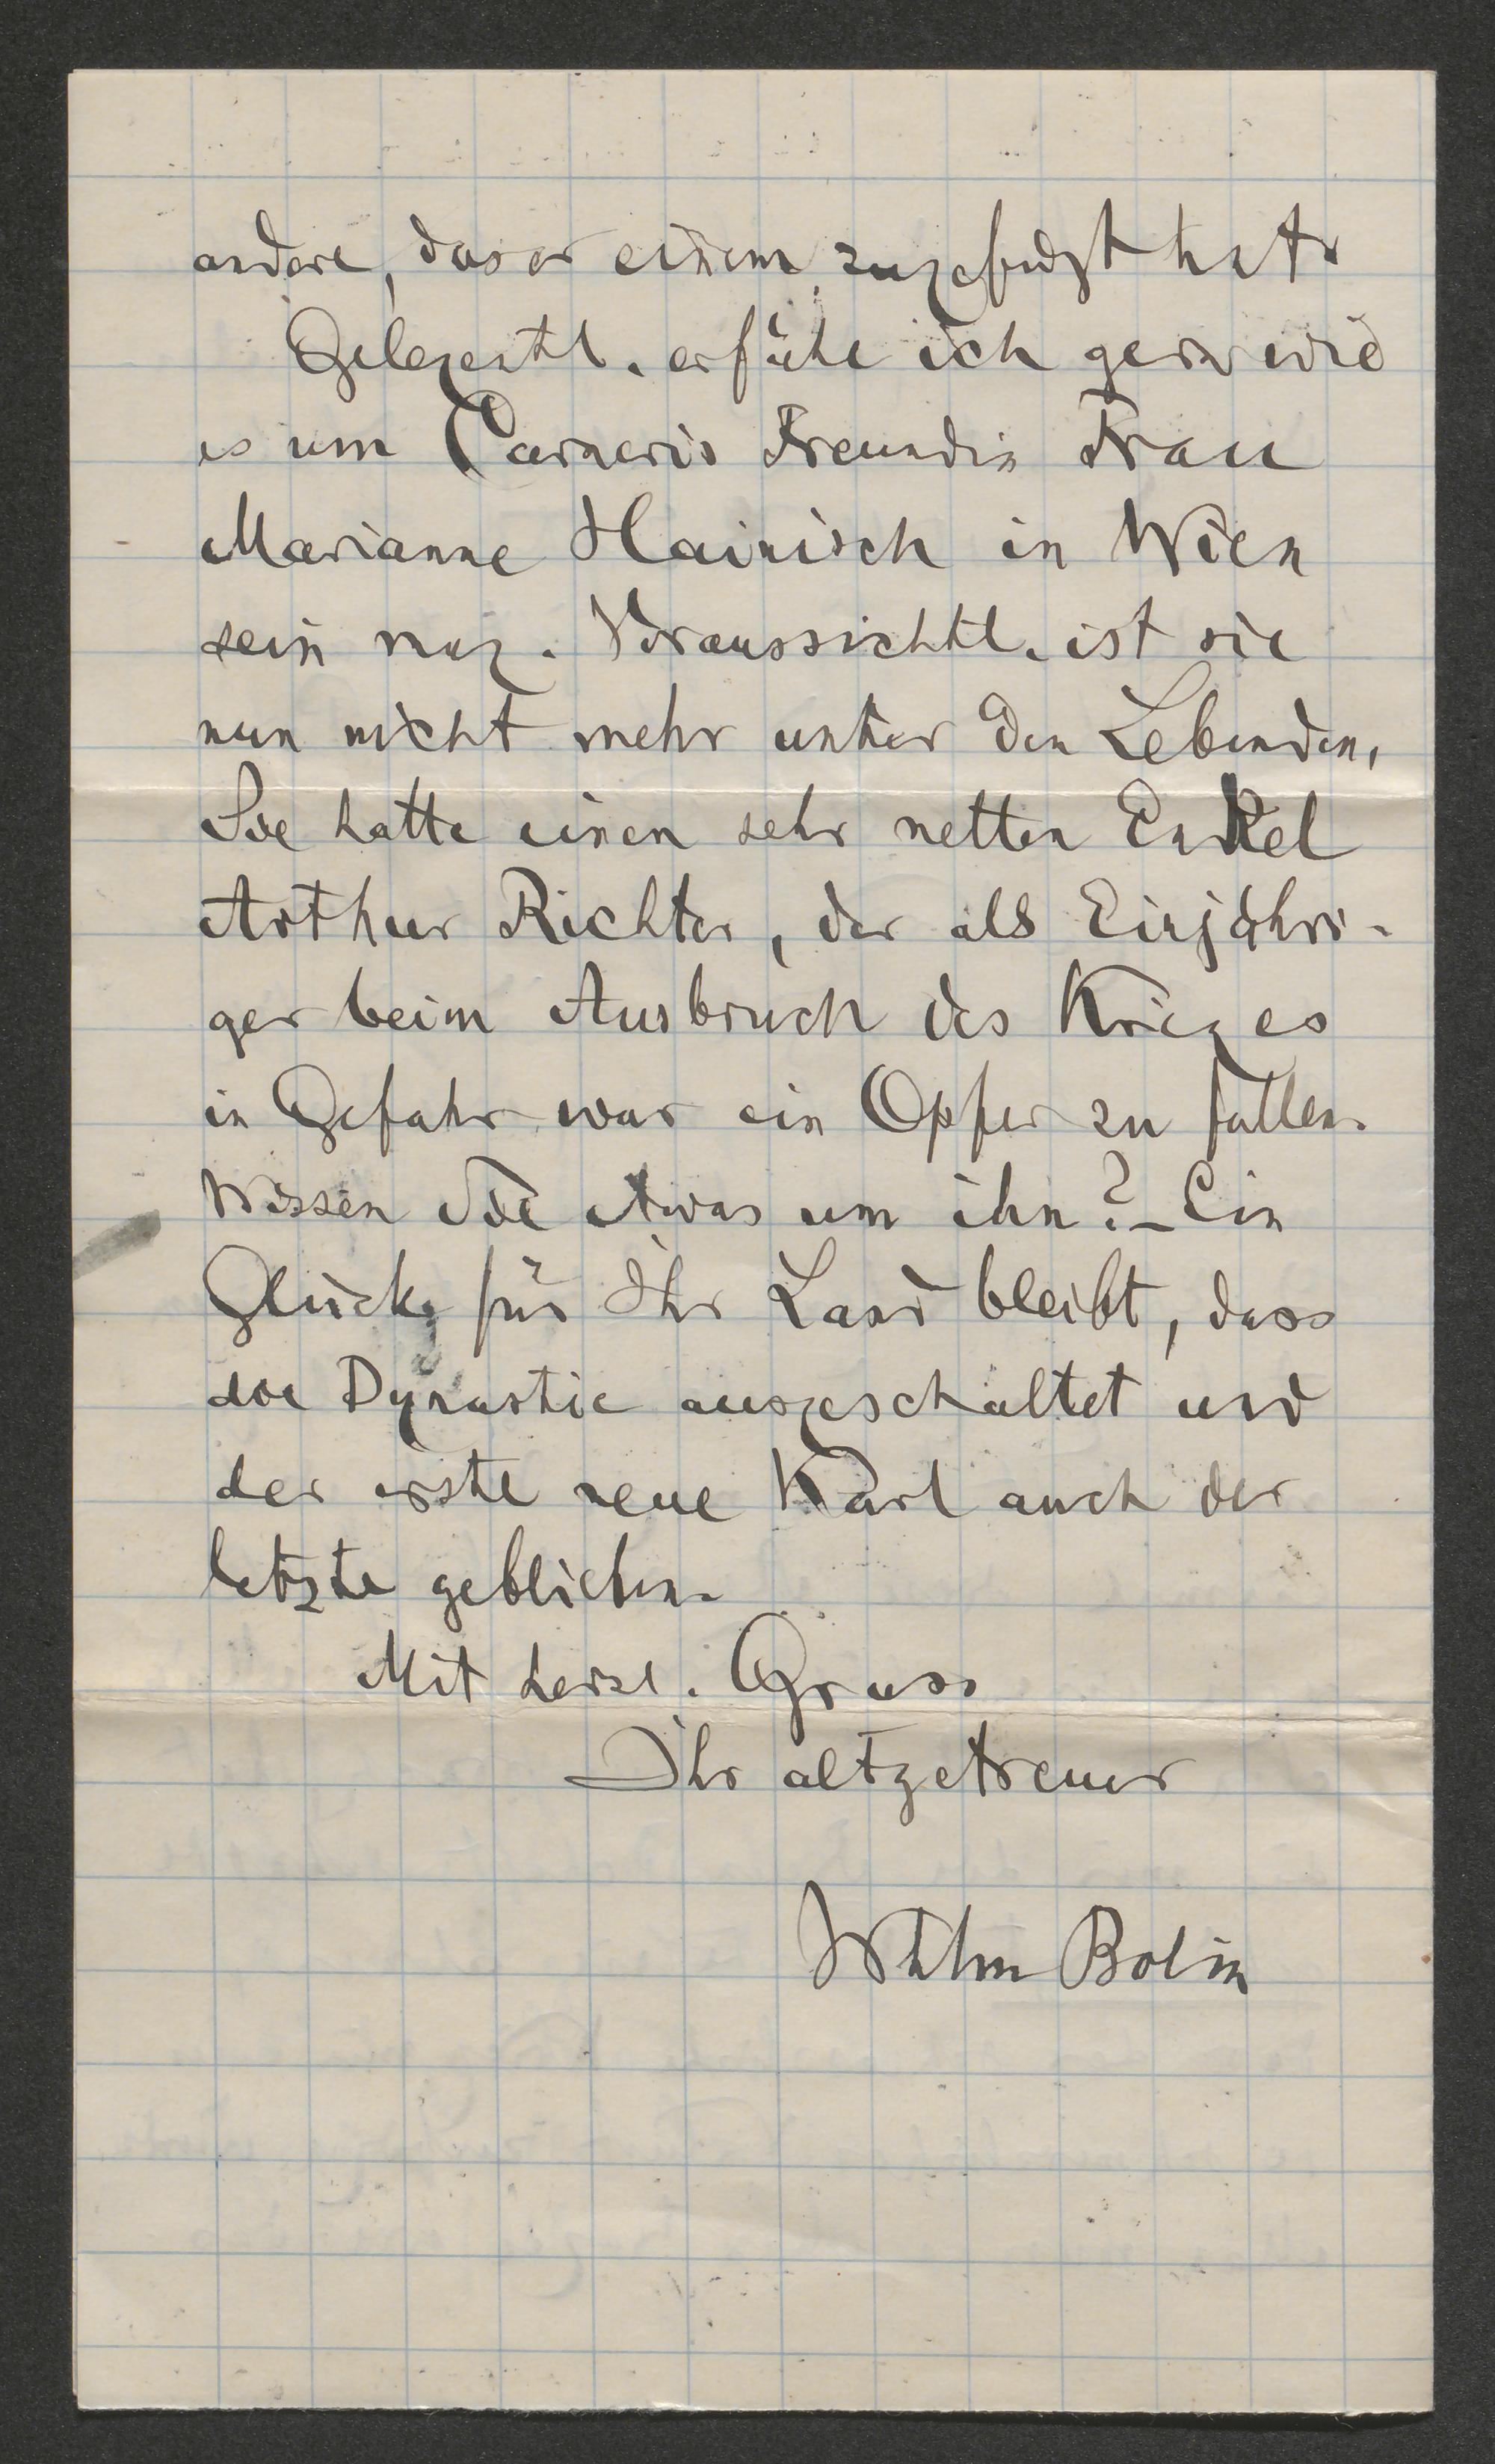 andere, das er einem zugefügt hat.
Gelegentl. erführe ich gern wie
es um Carneris Freundin Frau
Marianne Hainisch in Wien
sein mag. Voraussichtl. ist sie
nun nicht mehr unter den Lebenden.
Sie hatte einen sehr netten Enkel
Arthur Richter, der als Einjähri-
ger beim Ausbruch des Krieges
in Gefahr war ein Opfer zu fallen.
Wissen Sie etwas um ihn? – Ein
Glück für Ihr Land bleibt, dass
die Dynastie ausgeschaltet und
der erste neue Karl auch der
letzte geblieben.
Mit herzl. Gruss
Ihr altgetreuer
Wilhm Bolin